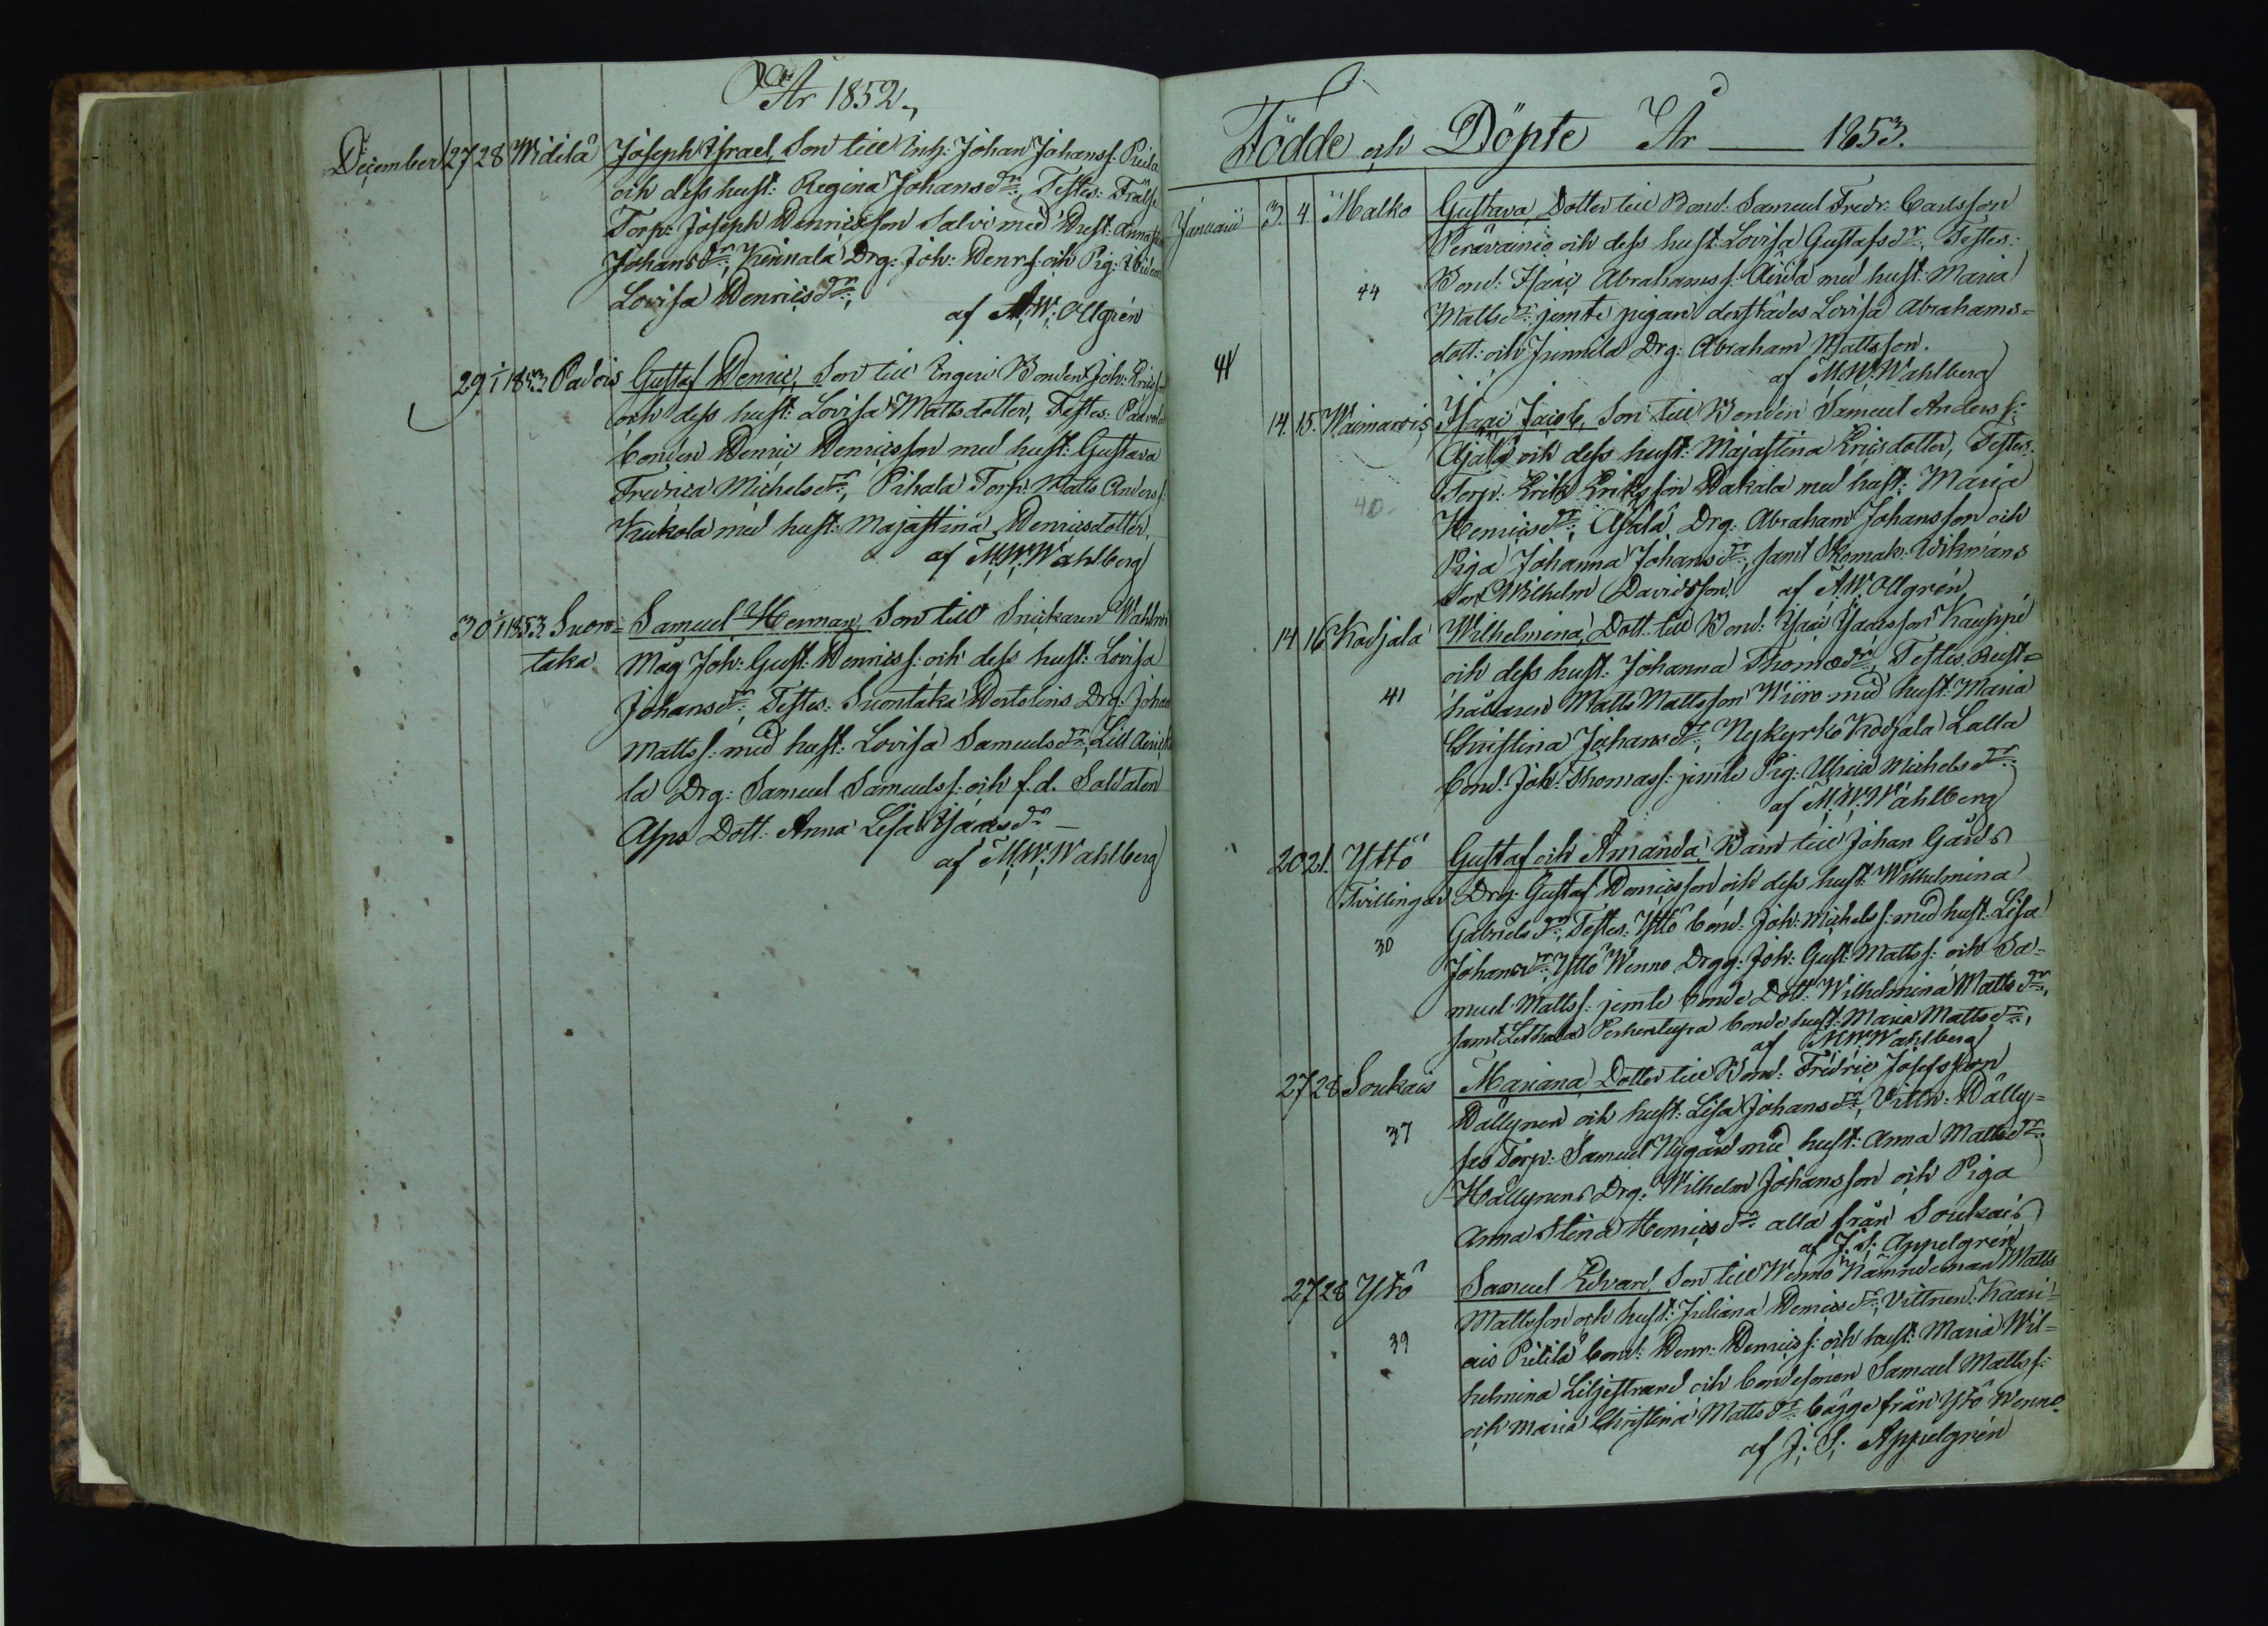 År 1852.
December 27 28 Widilä Joseph Israel, Son till Inh: Johan Johanss:
och dess hust: Regina Johansdr:, Testes: Frälse
Torp: Joseph Henricsson Salvi med Hust: Anna
Johansdr:, Kinnala Drg: Joh: Henrs: och Pig:
Lovisa Henricsdr:,
af A.W. Ollgrén
29 1/1 1853 Padois Gustaf Henric, Son till Ingeri Bonden Joh:
och dess hust: Lovisa Mattsdotter, Testes:
bonden Henric Henricsson med hust: Gustava
Fredrica Michelsdr:, Pihala Torp: Matts Anderss:
Kukola med hust: Majastina Henricsdotter,
af M.W. Wahlberg
30 1/1 1853 Suon= Samuel Herman, Son till Snickaren
taka Måg Joh: Gust: Henricss: och dess hust: Lovisa
Johansdr:, Testes: Suontaka Bertolins Drg: Johan
Mattss: med hust: Lovisa Samuelsdr:, Lill
la Drg: Samuel Samuelss: och f.d. Soldaten
Asps Dott: Anna Lisa Isacsdr
af M.W. Wahlberg
Födde och Döpte År 1853.
Januarii 3. 4. Malko Gustava, Dotter till Bond: Samuel Fredr: Carlsson
Perävainio och dess hust: Lovisa Gustafsdr:, Testes:
44 Bond: Isaac Abrahamss: med hust: Maria
Mattsdr: jemte pigan derstädes Lovisa Abrahams=
dott: och Junnila Drg: Abraham Mattsson.
af M.W. Wahlberg
41
14. 15. Waimarois Isaac Jacob, Son till Bonden Samuel Anderss:
Ajala och dess hust: Majastina Ericsdotter, Testes:
40. Torp: Erik Eriksson Hakala med hust: Maria
Henricsdr:, Drg: Abraham Johansson och
Piga Johanna Johansdr:, samt Skomak: Wikmans
son Wilhelm Davidsson. af A.W. Ollgrén
14 16 Kodjala Wilhelmina, Dott: till Bond: Isac Isacsson Kauppi
och dess hust: Johanna Thomædr:, Testes: Rust=
41 hållaren Matts Mattsson Wiiro med hust: Maria
Christina Johansdr:, Nykyrko Kodjala Lalla
bond: Joh: Thomass: jemte Pig: Ulrica Michelsdr:
af M.W. Wahlberg
20 21. Yttö Gustaf och Amanda, Barn till Johan Gårds
Tvillingar Drg: Gustaf Henricsson och dess hust: Wilhelmina
30 Gabrielsdr:, Testes: Yttö bond: Joh: Michelss: med hust: Lisa
Johansdr:, Yttö Wenno Drgg: Joh: Gust: Mattss: och Sa=
muel Mattss: jemte bonde Dott: Wilhelmina Mattsdr:,
samt Perhentupa bonde hust: Maria Mattsdr:,
af M.W. Wahlberg
27 28 Soukais Mariana, Dotter till Bond: Fredric Josefsson
Hällynen och hust: Lisa Johansdr:, Vittn: Hälly=
37 ses Torp: Samuel Nygård med hust: Anna Mattsdr:
Hällynens Drg: Wilhelm Johansson och Piga
Anna Stina Henricsdr: alla från Soukais
af J. S. Appelgrén
27 28 Yttö Samuel Edvard, Son till Wenno Nämndeman Matts
Mattsson och hust: Juliana Henricsdr:, Vittnen: Kaari=
39 ais Pietilä bond: Henr: Henricss: och hust: Maria Wil=
helmina Liljestrand och bondesonen Samuel Mattss:
och Maria Christina Mattsdr: bägge från Yttö Wenno.
af J. S. Appelgrén